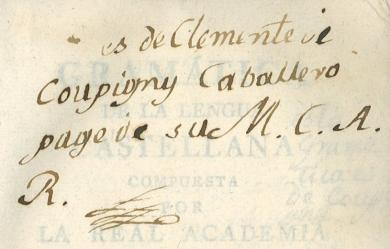 es de Clemente de
Coupigny Caballero
page de su M. C. A.
R.
GRAMÁTICA
DE LA LENGUA
CASTELLANA
COMPUESTA
POR
LA REAL ACADEMIA